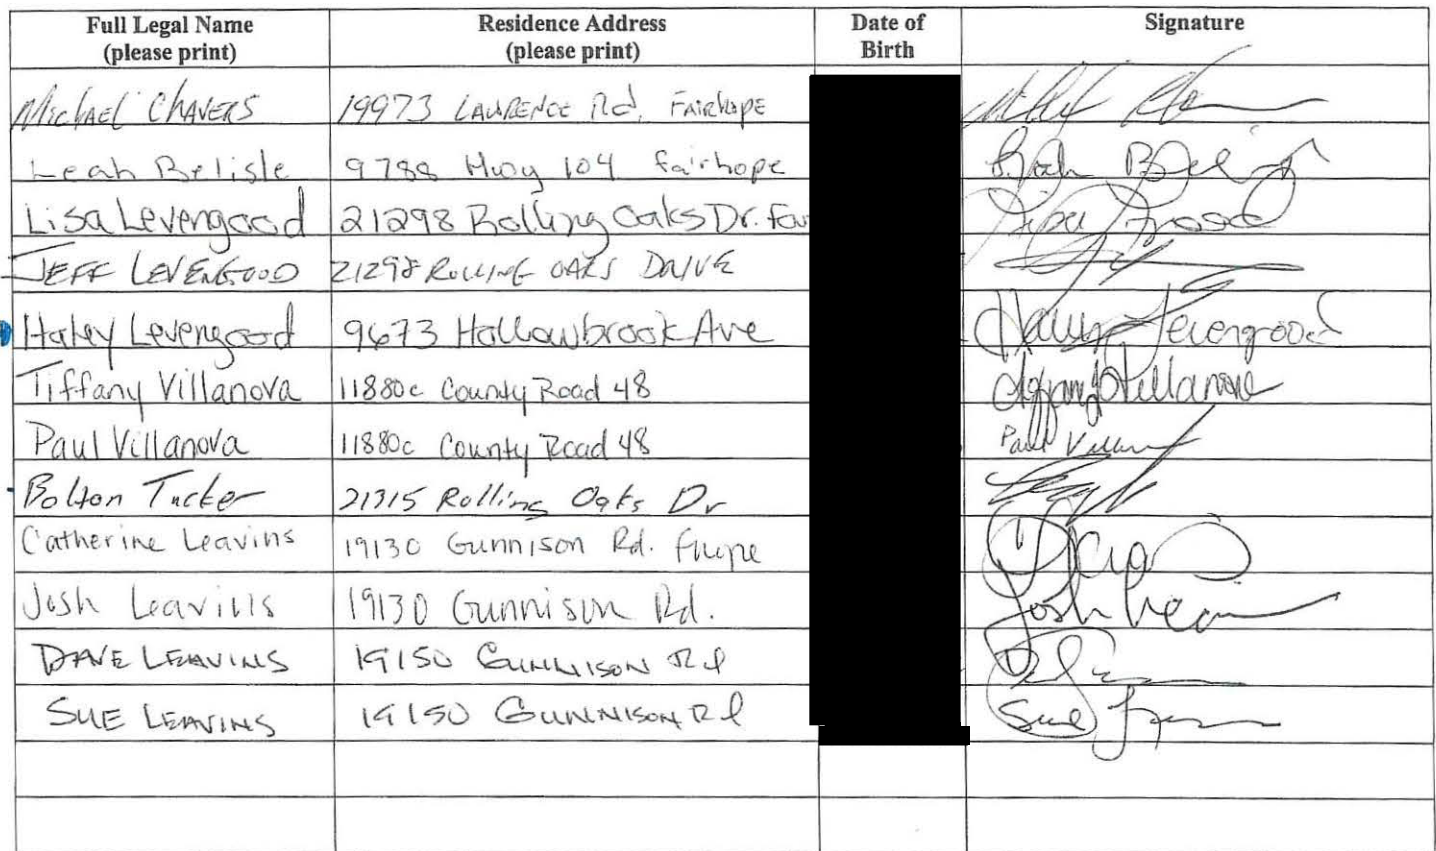 Full Legal Name (please print) Residence Address (please print) Date of Birth Signature
Michael Chavers 19973 Lawrence Rd, Fairhope
Leah Belisle 9788 Hwy 104 fairhope
Lisa Levengood 21298 Rolling Oaks Dr. Fai
JEFF LEVENGOOD 21298 ROLLING OAKS DRIVE
Haley Levengood 9673 Hollowbrook Ave Levengood
Tiffany Villanova 11880c County Road 48 Tiffany Villanova
Paul Villanova 11880c County Road 48 Paul
Bolton Tucker 21315 Rolling Oaks Dr
Catherine Leavins 19130 Gunnison Rd.
Josh Leavins 19130 Gunnison Rd. Josh
DAVE LEAVINS 19150 GUNNISON Rd
SUE LEAVINS 19150 GUNNISON Rd Sue